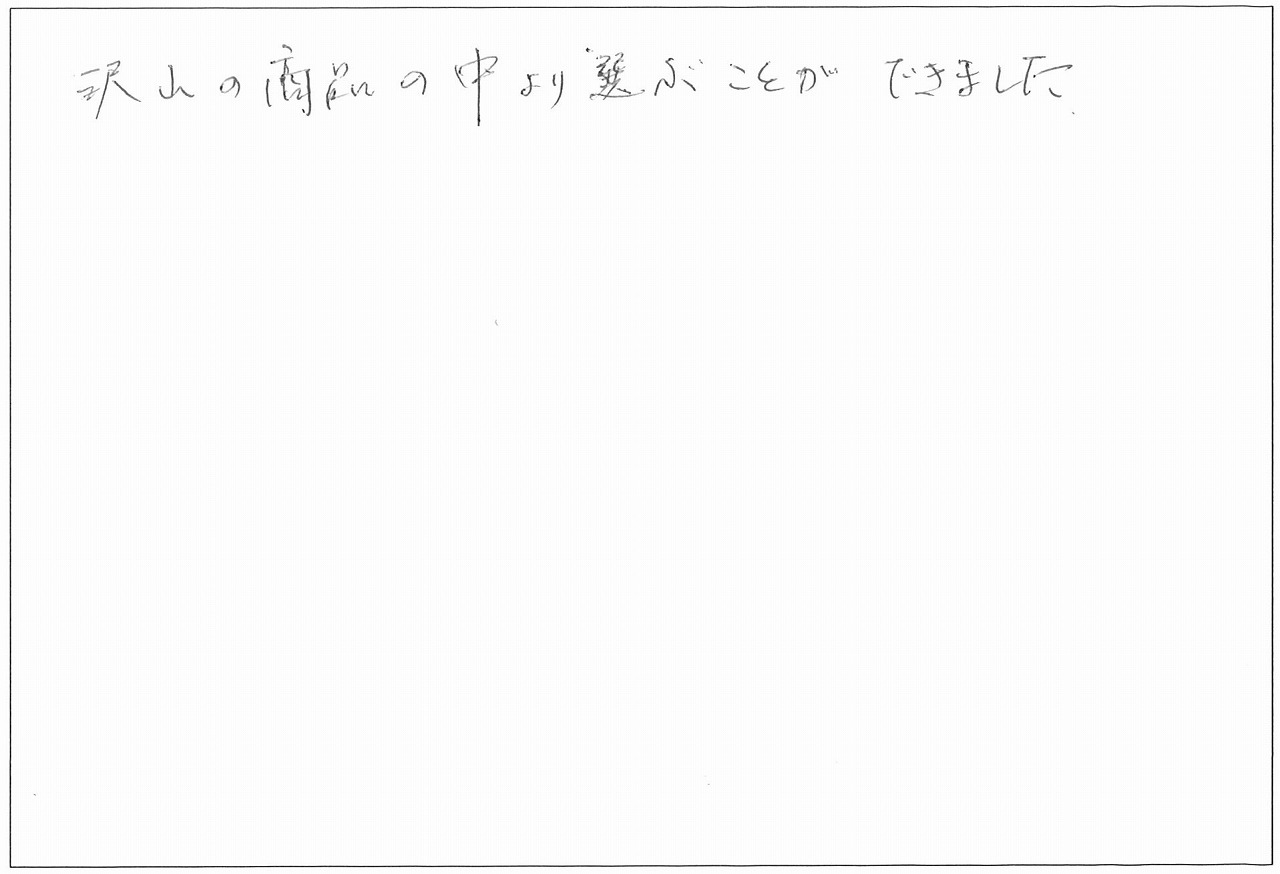 沢山の商品の中より選ぶことができました